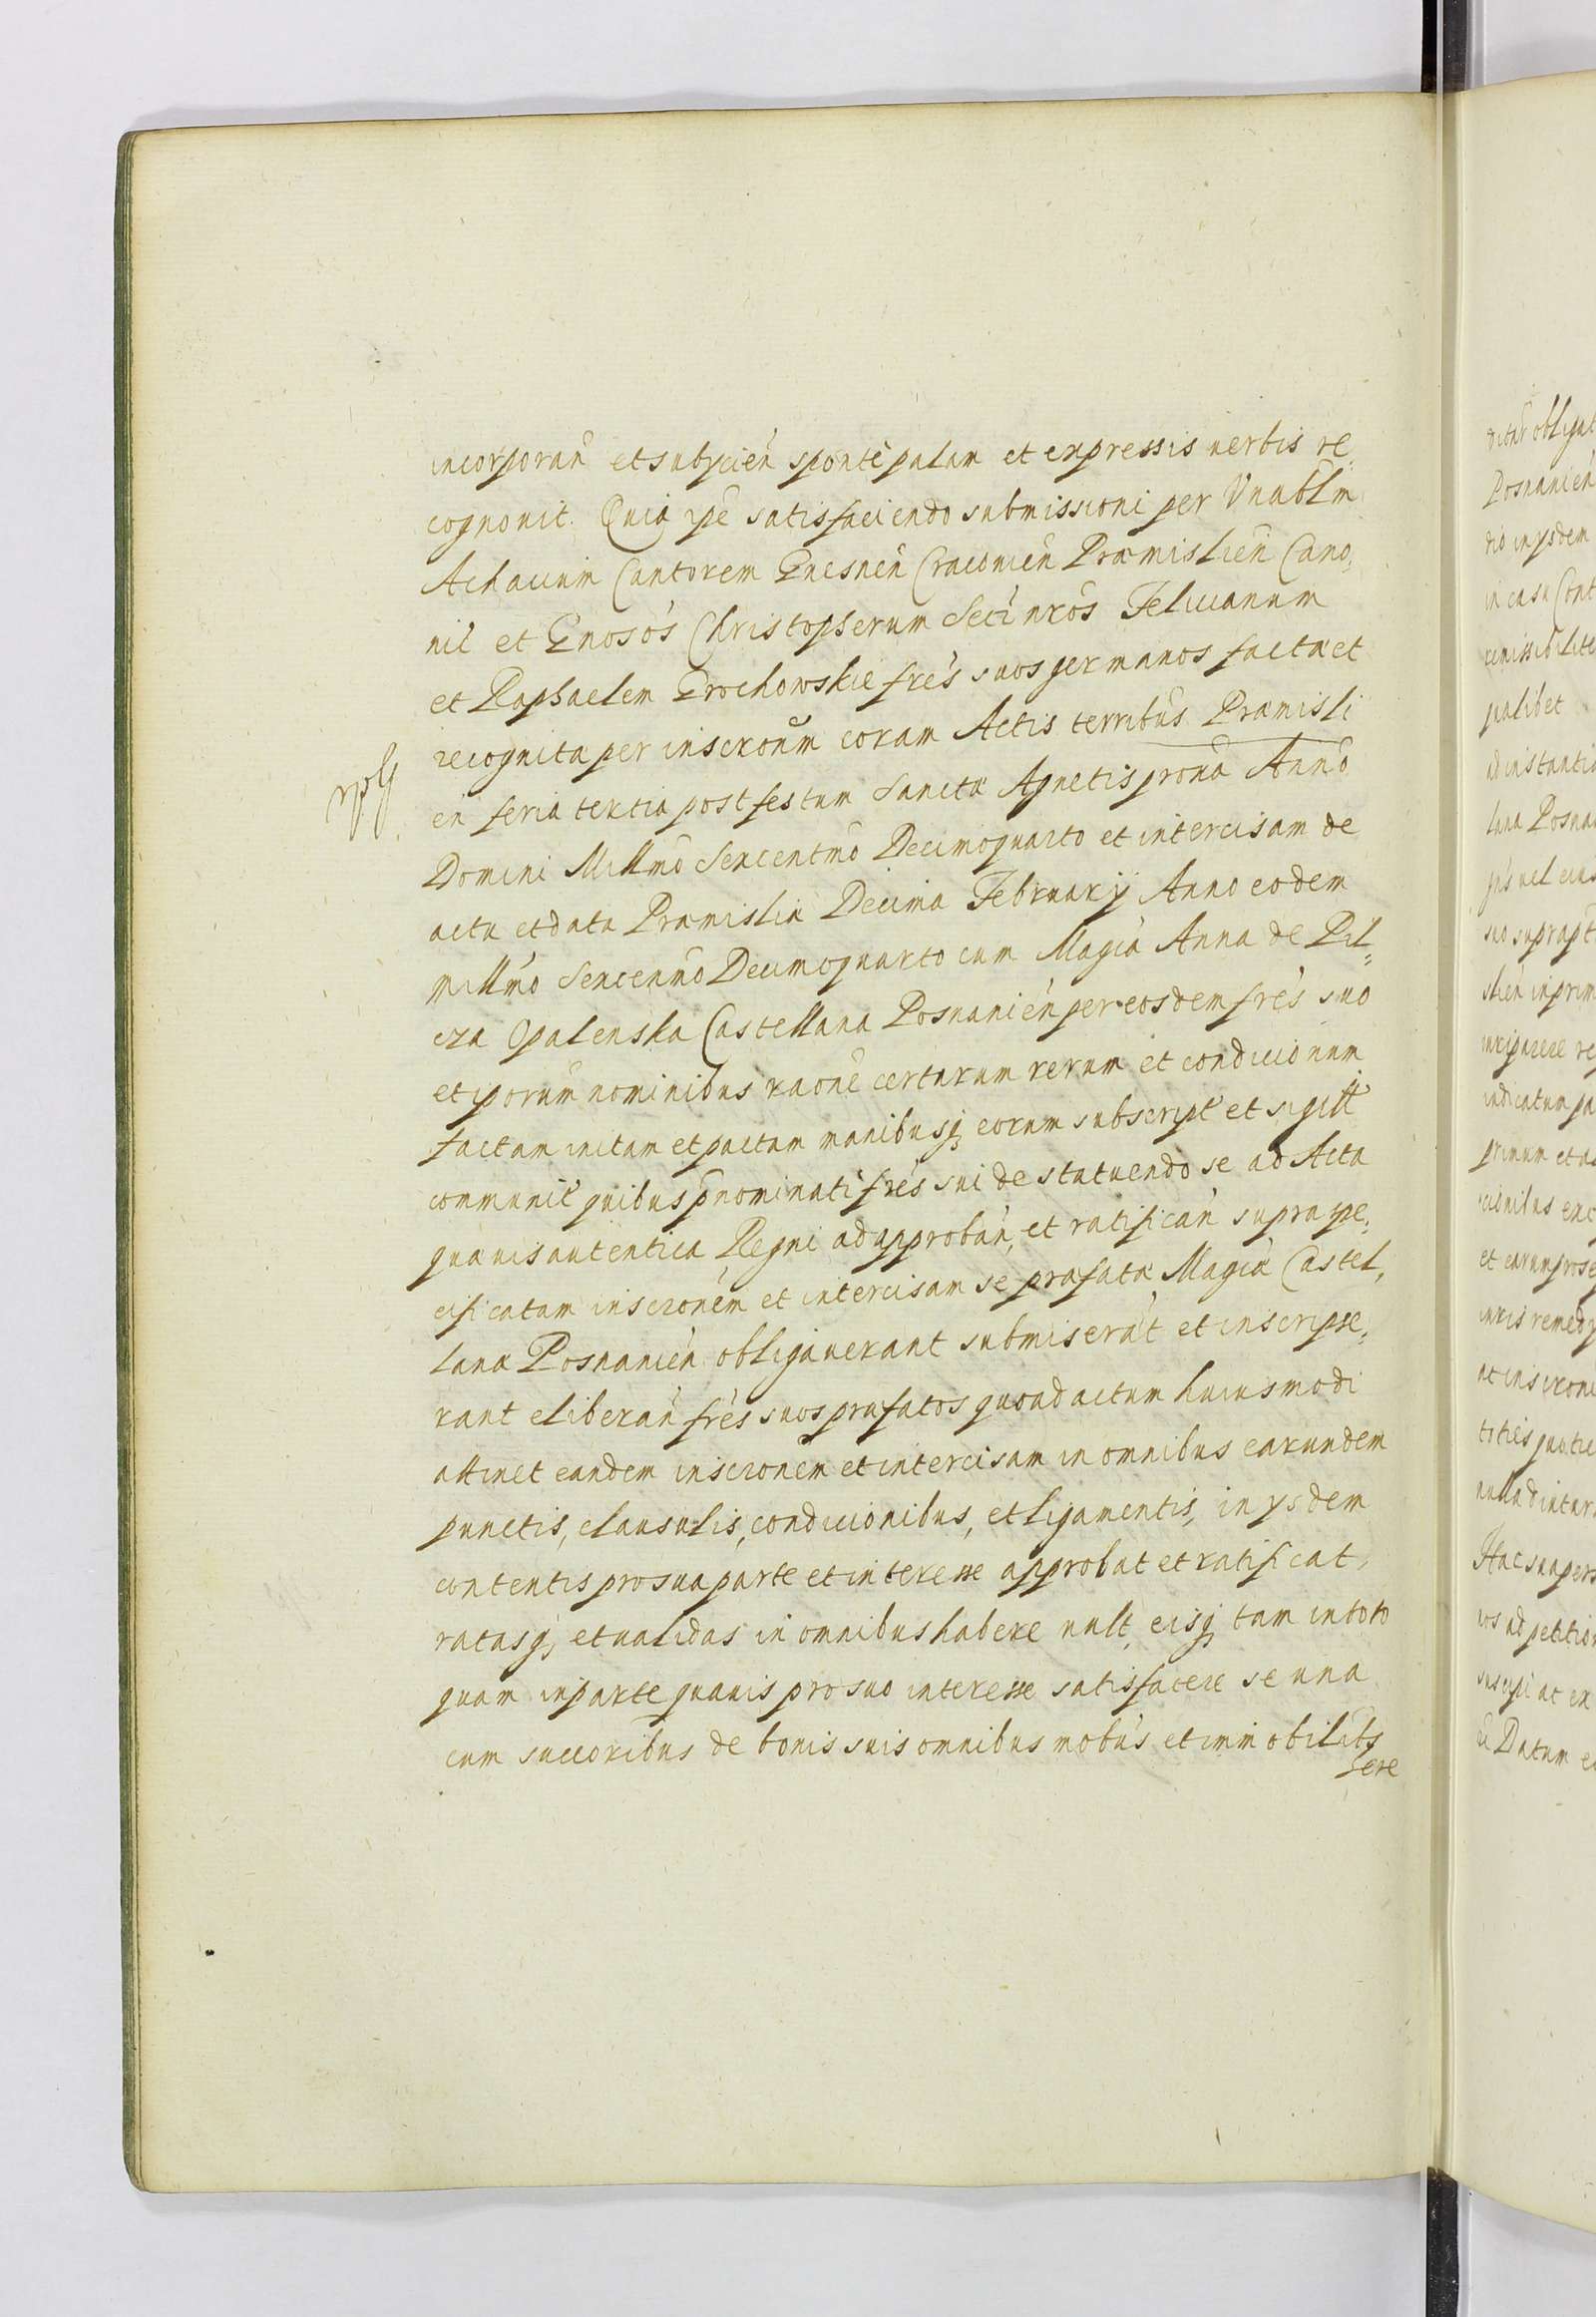 incorporan̄ et subycien̄ sponte palam et expressis uerbis re,
cognouit. Quia ipē satisfaciendo submissioni per Vnablm̄
Achacium Cantorem Gnesnen̄ Cracouien̄ Præmislien̄ Cano,
nic̄ et Gnosōs Christopherum Felicianum
et Raphaelem Grochowskie frēs suos germanos factæ et
recognitæ per inscrōnem coram Actis terribus Præmisli
en̄ feria tertia post festum Sanctæ Agnetis proxa Anno
Domini Millmō Sexcentmō Decimoquarto et intercisam de
actu et data Præmisliæ Decima February Anno eodem
millmō Sexcenmō Decimoquarto cum Magca Anna de Pil,,
cza Opalenska Castellana Posnanien̄ per eosdem frēs suo
et iporum nominibus raōne certarum rerum et condicionum
factam initam et pactam manibusq̨ eorum subscript̄ et sigill̄
communit̄ quibus p̄nominati frēs sui de statuendo se ad Acta
quæuis autentica Regni ad approban̄, et ratifican̄ supraspe,
cificatam inscrōnem et intercisam se præfatæ Magcæ Castel,
lanæ Posnanien̄ obligauerant submiserāt et inscripse,
rant eliberan̄ frēs suos præfatos quoad actum huiusmodi
attinet eandem inscrōnem et intercisam in omnibus earundem
punctis, clausulis, condicionibus, et ligamentis, in ysdem
contentis pro sua parte et interesse approbat et ratificat,
ratasq̨, et ualidas in omnibus habere uult, eisq̨ tam in toto
quam in parte quauis pro suo interesse satisfacere se una
cum succoribus de bonis suis omnibus mobūs et immobilibs
sere